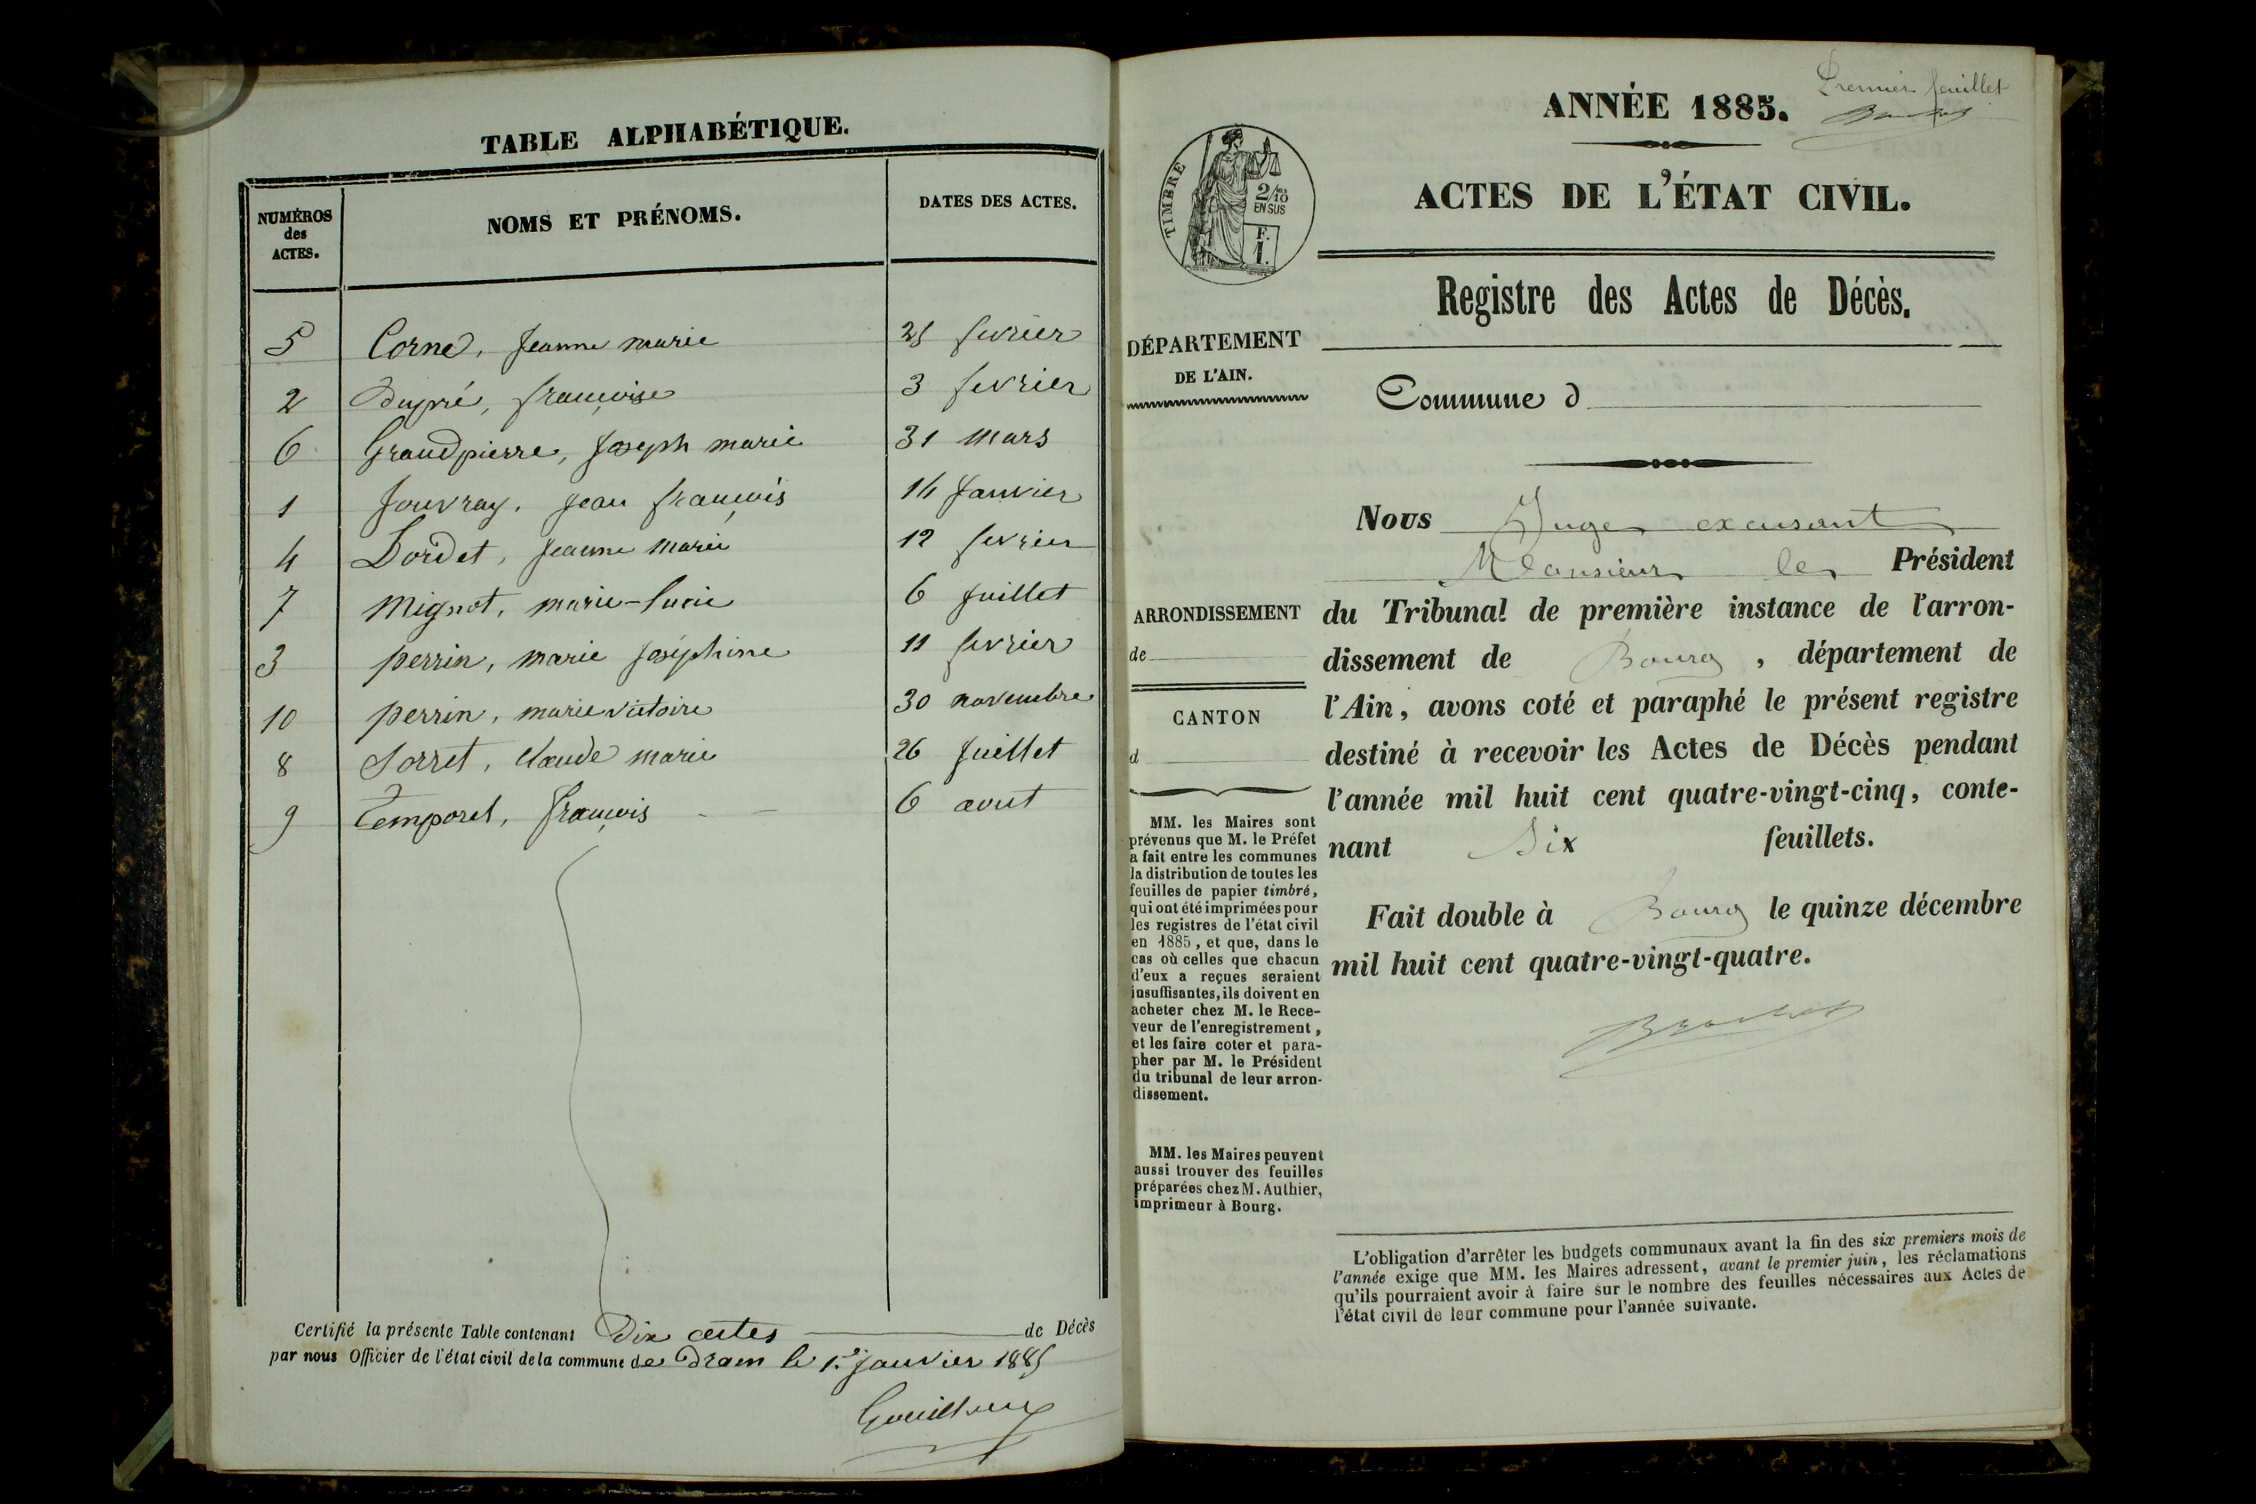 TABLE ALPHABÉTIQUE.
NUMÉROS
des
ACTES.
NOMS ET PRÉNOMS.
DATES DES ACTES.
5 Corne, Jeanne marie 25 fevrier
2 Dupré, françoise 3 fevrier
6 Grandpierre, Joseph marie 31 mars
1 Jouvray, Jean françois 14 Janvier
4 Lordet, Jeanne Marie 12 fevrier
7 Mignot, marie-lucie 6 Juillet
3 perrin, marie Joséphine 11 fevrier
10 perrin, marie victoire 30 novembre
8 Sorret, Claude marie 26 Juillet
9 Temporel, françois 6 aout
Certifié la présente Table contenant Dix actes de Décès
par nous Officier de l'état civil de la commune de Drom le 1er Janvier 1885
Premier feuillet
ANNÉE 1885.
ACTES DE L'ÉTAT CIVIL.
TIMBRE
2/10
EN SUS
F.
1.
Registre des Actes de Décès.
DÉPARTEMENT
DE L'AIN.
Commune d
Nous Juge excusant
Monsieur le Président
du Tribunal de première instance de l'arron-
dissement de Bourg, département de
l'Ain, avons coté et paraphé le présent registre
destiné à recevoir les Actes de Décès pendant
l'année mil huit cent quatre-vingt-cinq, conte-
nant Six feuillets.
Fait double à Bourg le quinze décembre
mil huit cent quatre-vingt-quatre.
ARRONDISSEMENT
de
CANTON
d
MM. les Maires sont
prévenus que M. le Préfet
a fait entre les communes
la distribution de toutes les
feuilles de papier timbré,
qui ont été imprimées pour
les registres de l'état civil
en 1885, et que, dans le
cas où celles que chacun
d'eux a reçues seraient
insuffisantes, ils doivent en
acheter chez M. le Rece-
veur de l'enregistrement,
et les faire coter et para-
pher par M. le Président
du tribunal de leur arron-
dissement.
MM. les Maires peuvent
aussi trouver des feuilles
préparées chez M. Authier,
imprimeur à Bourg.
L'obligation d'arrêter les budgets communaux avant la fin des six premiers mois de
l'année exige que MM. les Maires adressent, avant le premier juin, les réclamations
qu'ils pourraient avoir à faire sur le nombre des feuilles nécessaires aux Actes de
l'état civil de leur commune pour l'année suivante.